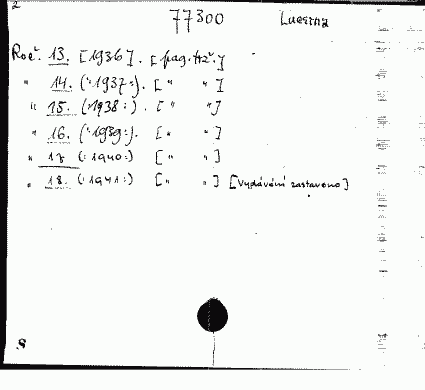 2
77300 Lucerna
Roč. 13. [1936]. [pag. tiž]
" 14. (:1937:). [" "]
" 15. (:1938:). [" "]
" 16. (:1939:). [" "]
" 17. (:1940:) [" "]
" 18. (:1941:) [" "] [Vydávání zastaveno]
S